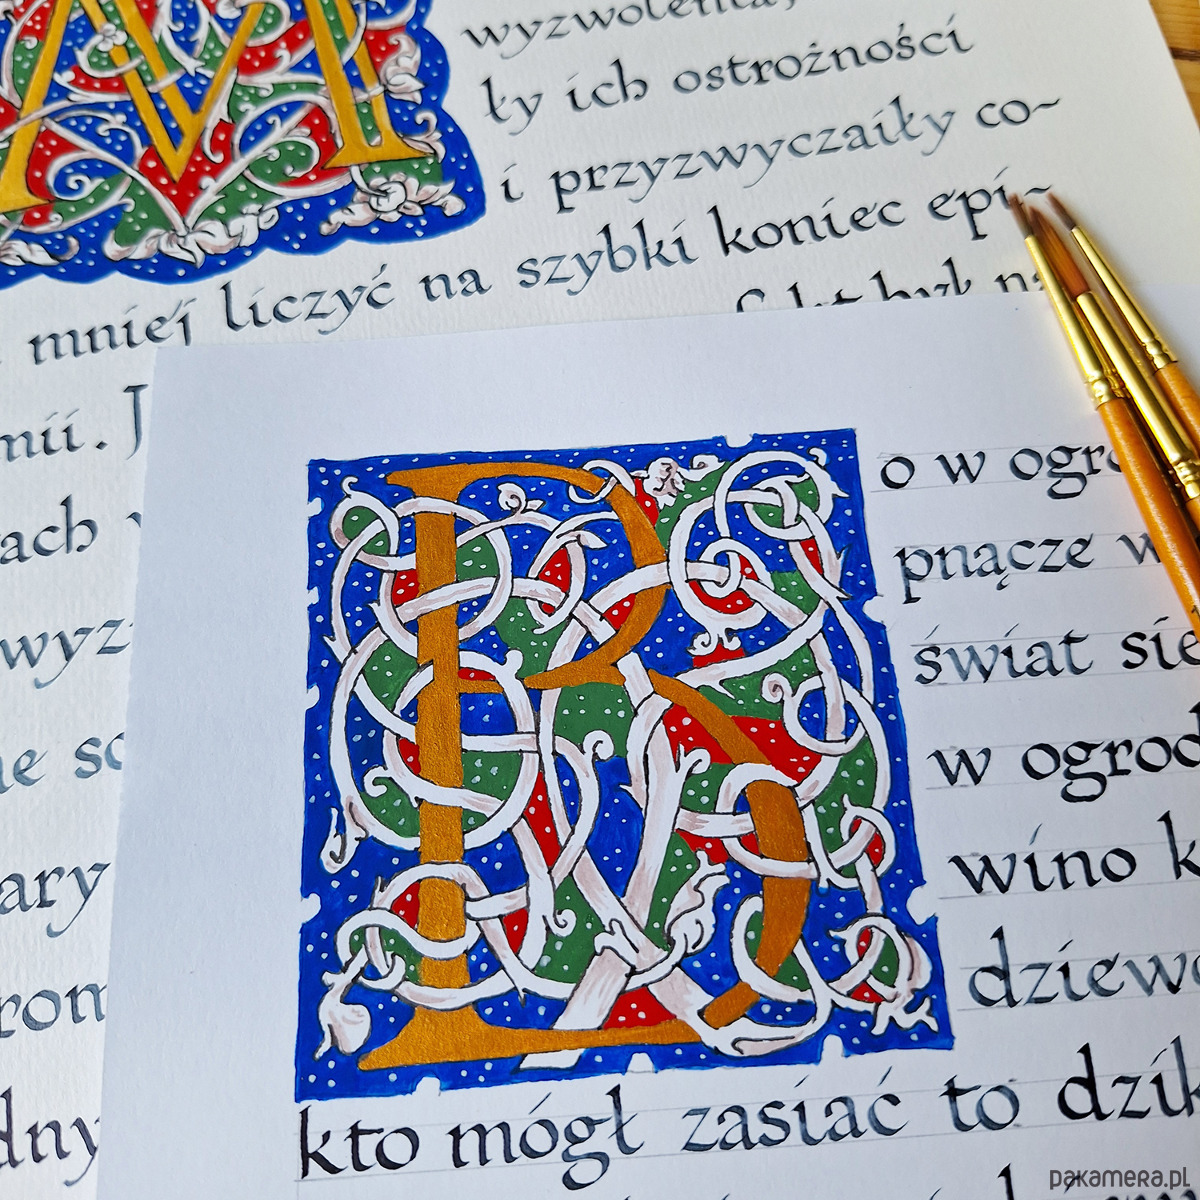 M
wyzwolenia,
ły ich ostrożności
i przyzwyczaiły co~
mniej liczyć na szybki koniec epi~
mii. J
był na
ach
wyz
ne sc
ary
rom
dny
R
o w ogro
pnącze w
świat się
w ogrod
wino k
dziewo
kto mógł zasiać to dzik
pakamera.pl